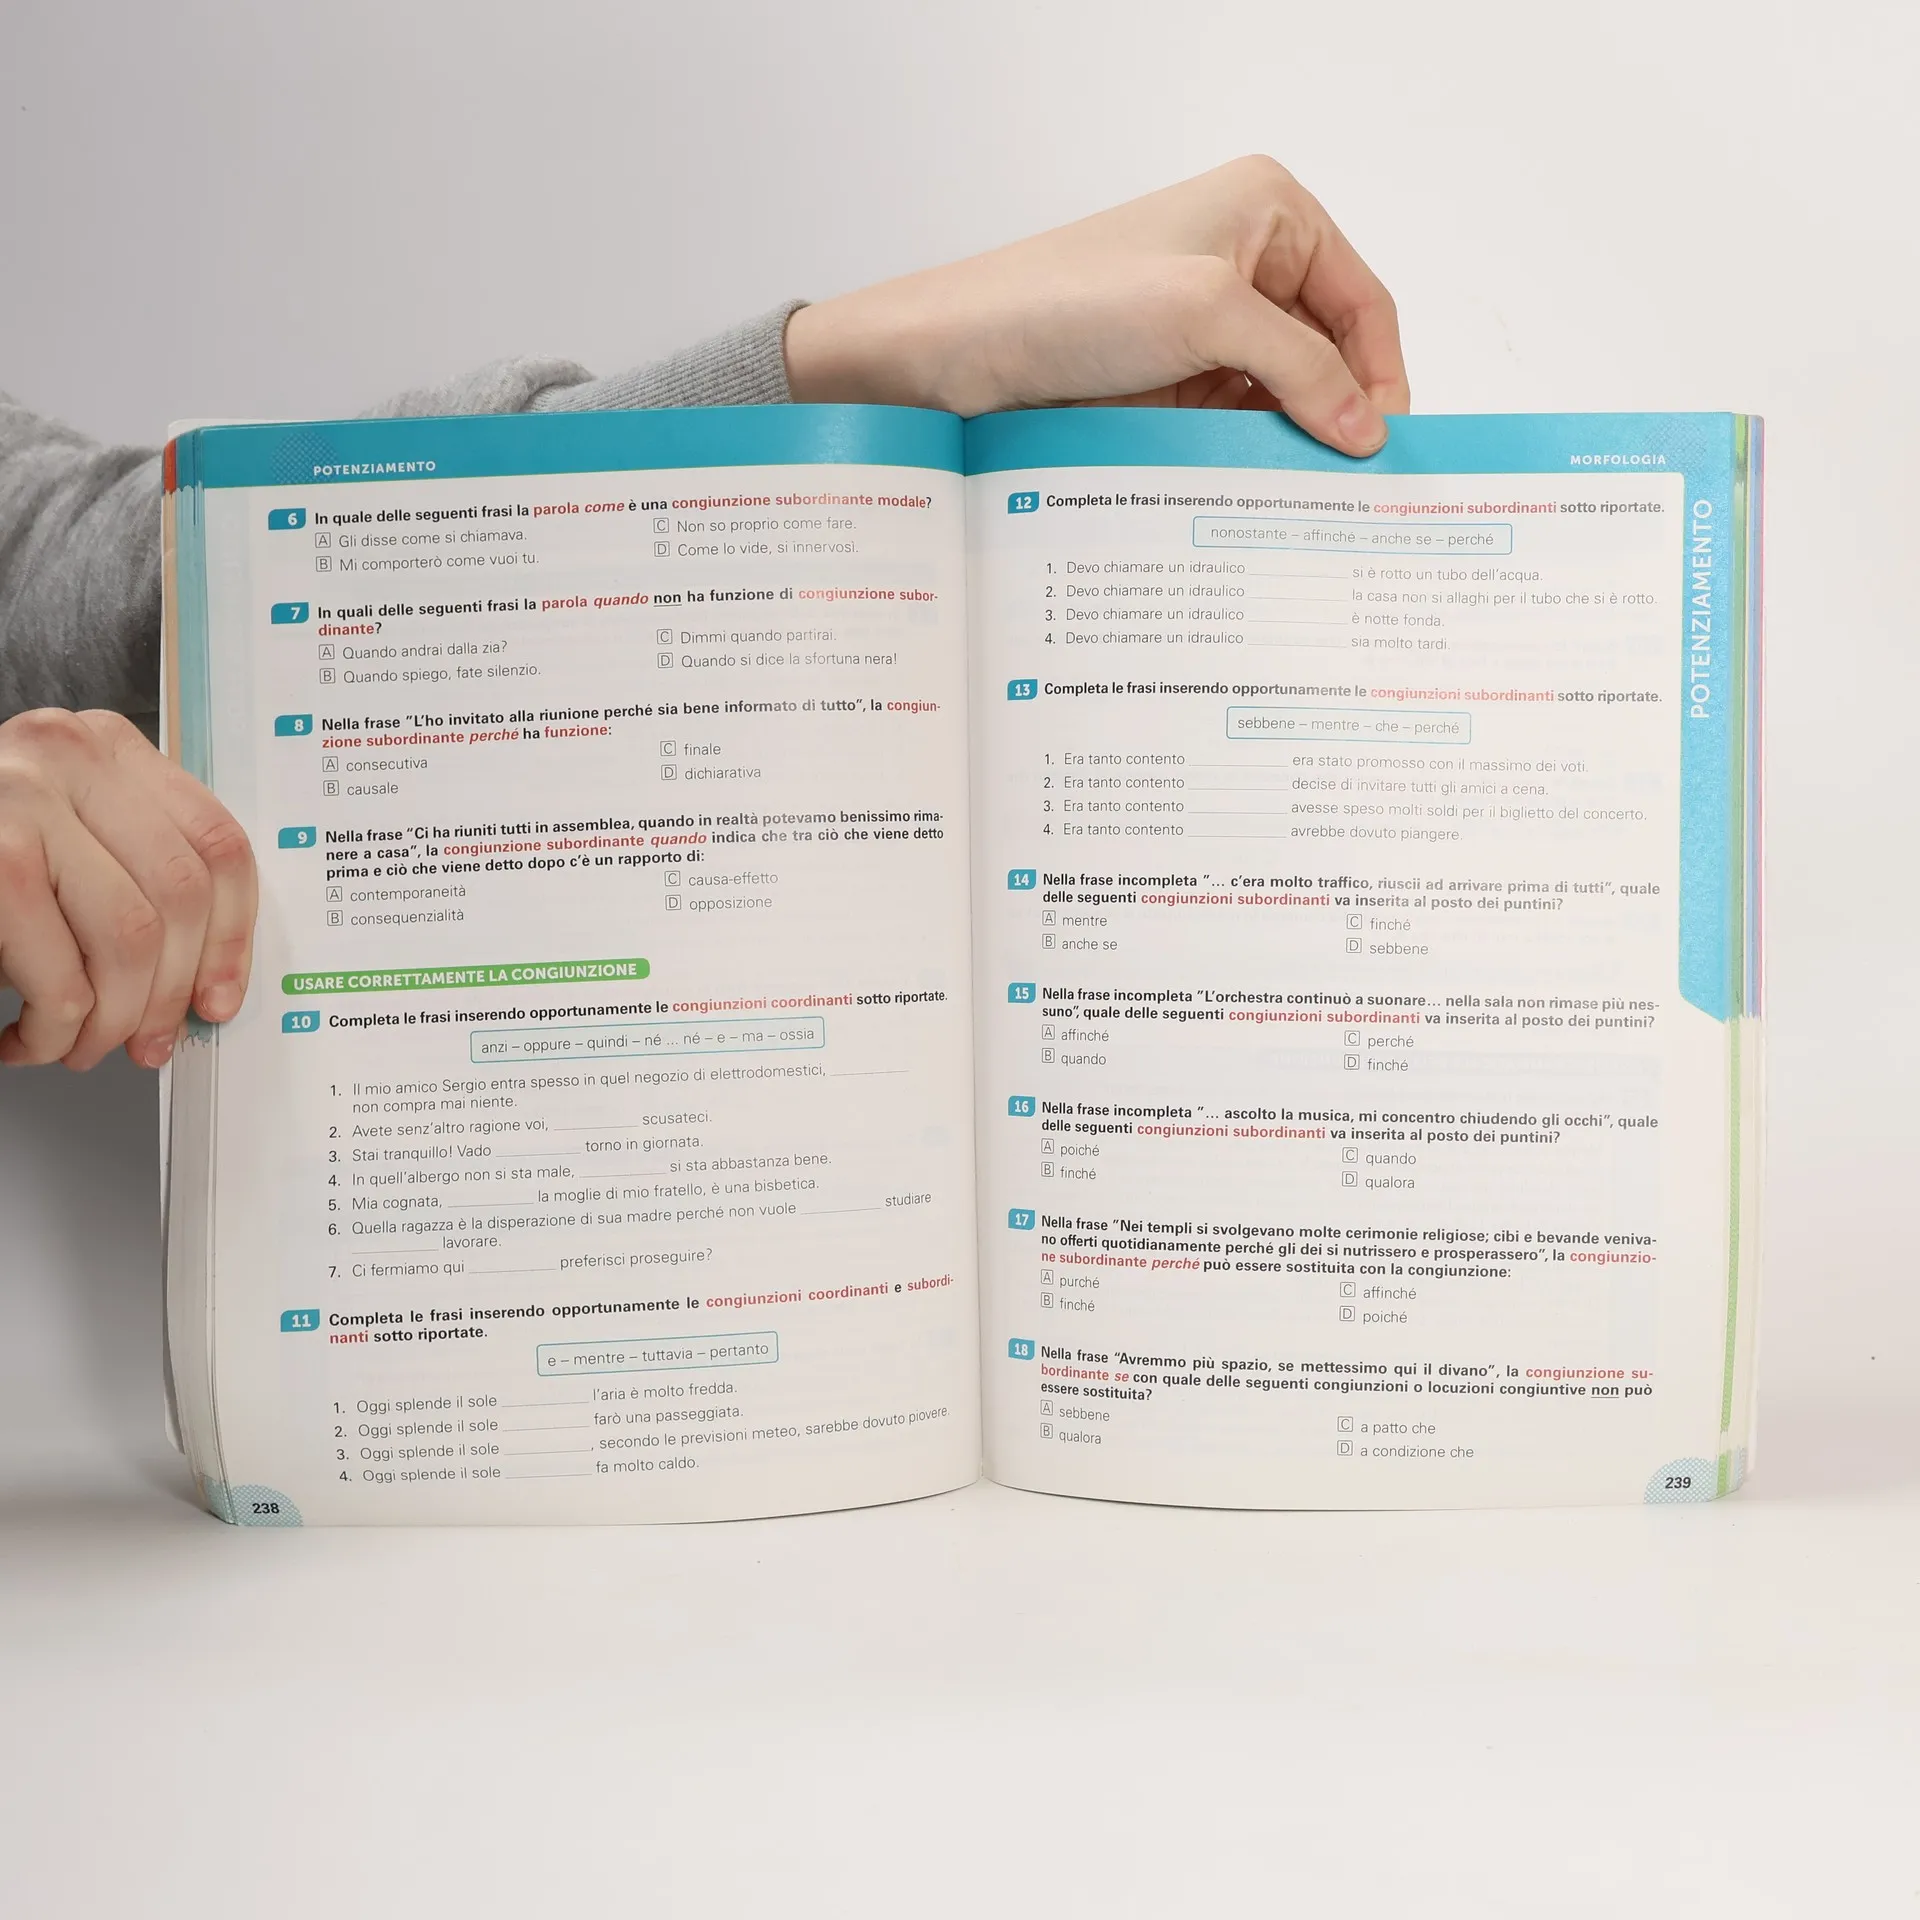 POTENZIAMENTO
6 In quale delle seguenti frasi la parola come è una congiunzione subordinante modale?
A Gli disse come si chiamava.
B Mi comporterò come vuoi tu.
C Non so proprio come fare.
D Come lo vide, si innervosì.
7 In quali delle seguenti frasi la parola quando non ha funzione di congiunzione subor-
dinante?
A Quando andrai dalla zia?
B Quando spiego, fate silenzio.
C Dimmi quando partirai.
D Quando si dice la sfortuna nera!
8 Nella frase "L'ho invitato alla riunione perché sia bene informato di tutto", la congiun-
zione subordinante perché ha funzione:
A consecutiva
B causale
C finale
D dichiarativa
9 Nella frase "Ci ha riuniti tutti in assemblea, quando in realtà potevamo benissimo rima-
nere a casa", la congiunzione subordinante quando indica che tra ciò che viene detto
prima e ciò che viene detto dopo c'è un rapporto di:
A contemporaneità
B consequenzialità
C causa-effetto
D opposizione
USARE CORRETTAMENTE LA CONGIUNZIONE
10 Completa le frasi inserendo opportunamente le congiunzioni coordinanti sotto riportate.
anzi – oppure – quindi – né ... né – e – ma – ossia
1. Il mio amico Sergio entra spesso in quel negozio di elettrodomestici, ________
non compra mai niente.
2. Avete senz'altro ragione voi, ________ scusateci.
3. Stai tranquillo! Vado ________ torno in giornata.
4. In quell'albergo non si sta male, ________ si sta abbastanza bene.
5. Mia cognata, ________ la moglie di mio fratello, è una bisbetica.
6. Quella ragazza è la disperazione di sua madre perché non vuole ________ studiare
________ lavorare.
7. Ci fermiamo qui ________ preferisci proseguire?
11 Completa le frasi inserendo opportunamente le congiunzioni coordinanti e subordi-
nanti sotto riportate.
e – mentre – tuttavia – pertanto
1. Oggi splende il sole ________ l'aria è molto fredda.
2. Oggi splende il sole ________ farò una passeggiata.
3. Oggi splende il sole ________, secondo le previsioni meteo, sarebbe dovuto piovere.
4. Oggi splende il sole ________ fa molto caldo.
238
MORFOLOGIA
POTENZIAMENTO
12 Completa le frasi inserendo opportunamente le congiunzioni subordinanti sotto riportate.
nonostante – affinché – anche se – perché
1. Devo chiamare un idraulico ________ si è rotto un tubo dell'acqua.
2. Devo chiamare un idraulico ________ la casa non si allaghi per il tubo che si è rotto.
3. Devo chiamare un idraulico ________ è notte fonda.
4. Devo chiamare un idraulico ________ sia molto tardi.
13 Completa le frasi inserendo opportunamente le congiunzioni subordinanti sotto riportate.
sebbene – mentre – che – perché
1. Era tanto contento ________ era stato promosso con il massimo dei voti.
2. Era tanto contento ________ decise di invitare tutti gli amici a cena.
3. Era tanto contento ________ avesse speso molti soldi per il biglietto del concerto.
4. Era tanto contento ________ avrebbe dovuto piangere.
14 Nella frase incompleta "... c'era molto traffico, riuscii ad arrivare prima di tutti", quale
delle seguenti congiunzioni subordinanti va inserita al posto dei puntini?
A mentre
B anche se
C finché
D sebbene
15 Nella frase incompleta "L'orchestra continuò a suonare... nella sala non rimase più nes-
suno", quale delle seguenti congiunzioni subordinanti va inserita al posto dei puntini?
A affinché
B quando
C perché
D finché
16 Nella frase incompleta "... ascolto la musica, mi concentro chiudendo gli occhi", quale
delle seguenti congiunzioni subordinanti va inserita al posto dei puntini?
A poiché
B finché
C quando
D qualora
17 Nella frase "Nei templi si svolgevano molte cerimonie religiose; cibi e bevande veniva-
no offerti quotidianamente perché gli dei si nutrissero e prosperassero", la congiunzio-
ne subordinante perché può essere sostituita con la congiunzione:
A purché
B finché
C affinché
D poiché
18 Nella frase "Avremmo più spazio, se mettessimo qui il divano", la congiunzione su-
bordinante se con quale delle seguenti congiunzioni o locuzioni congiuntive non può
essere sostituita?
A sebbene
B qualora
C a patto che
D a condizione che
239